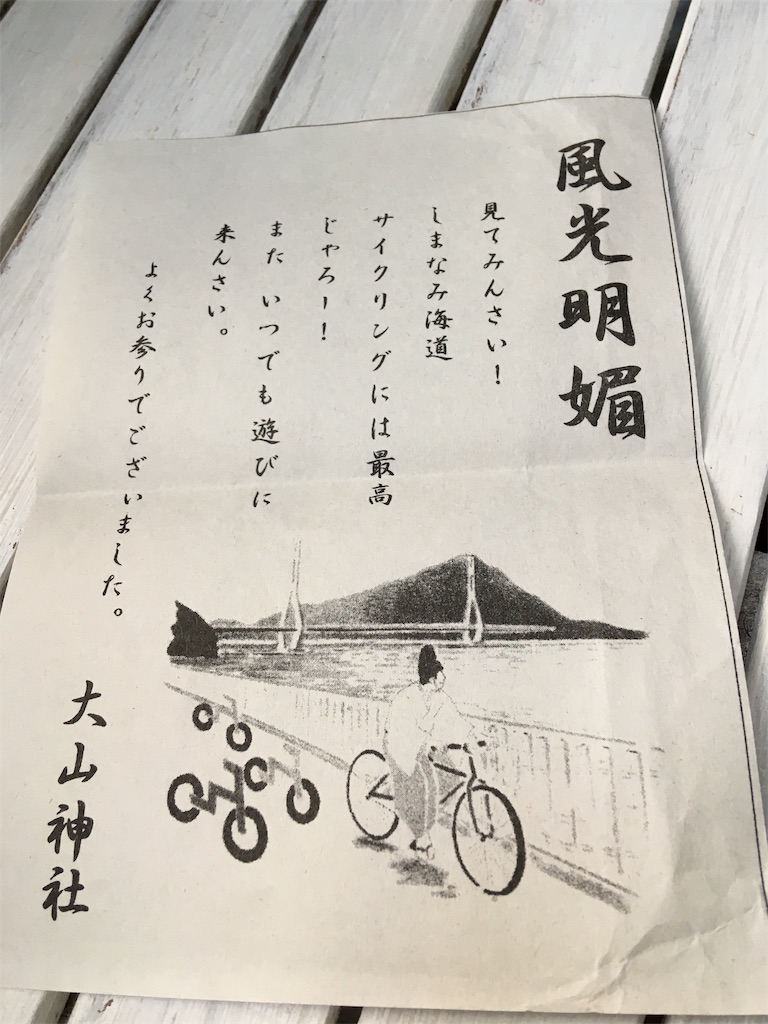 風光明媚
見てみんさい！
しまなみ海道
サイクリングには最高
じゃろー！
また いつでも遊びに
来んさい。
よくお参りでございました。
大山神社